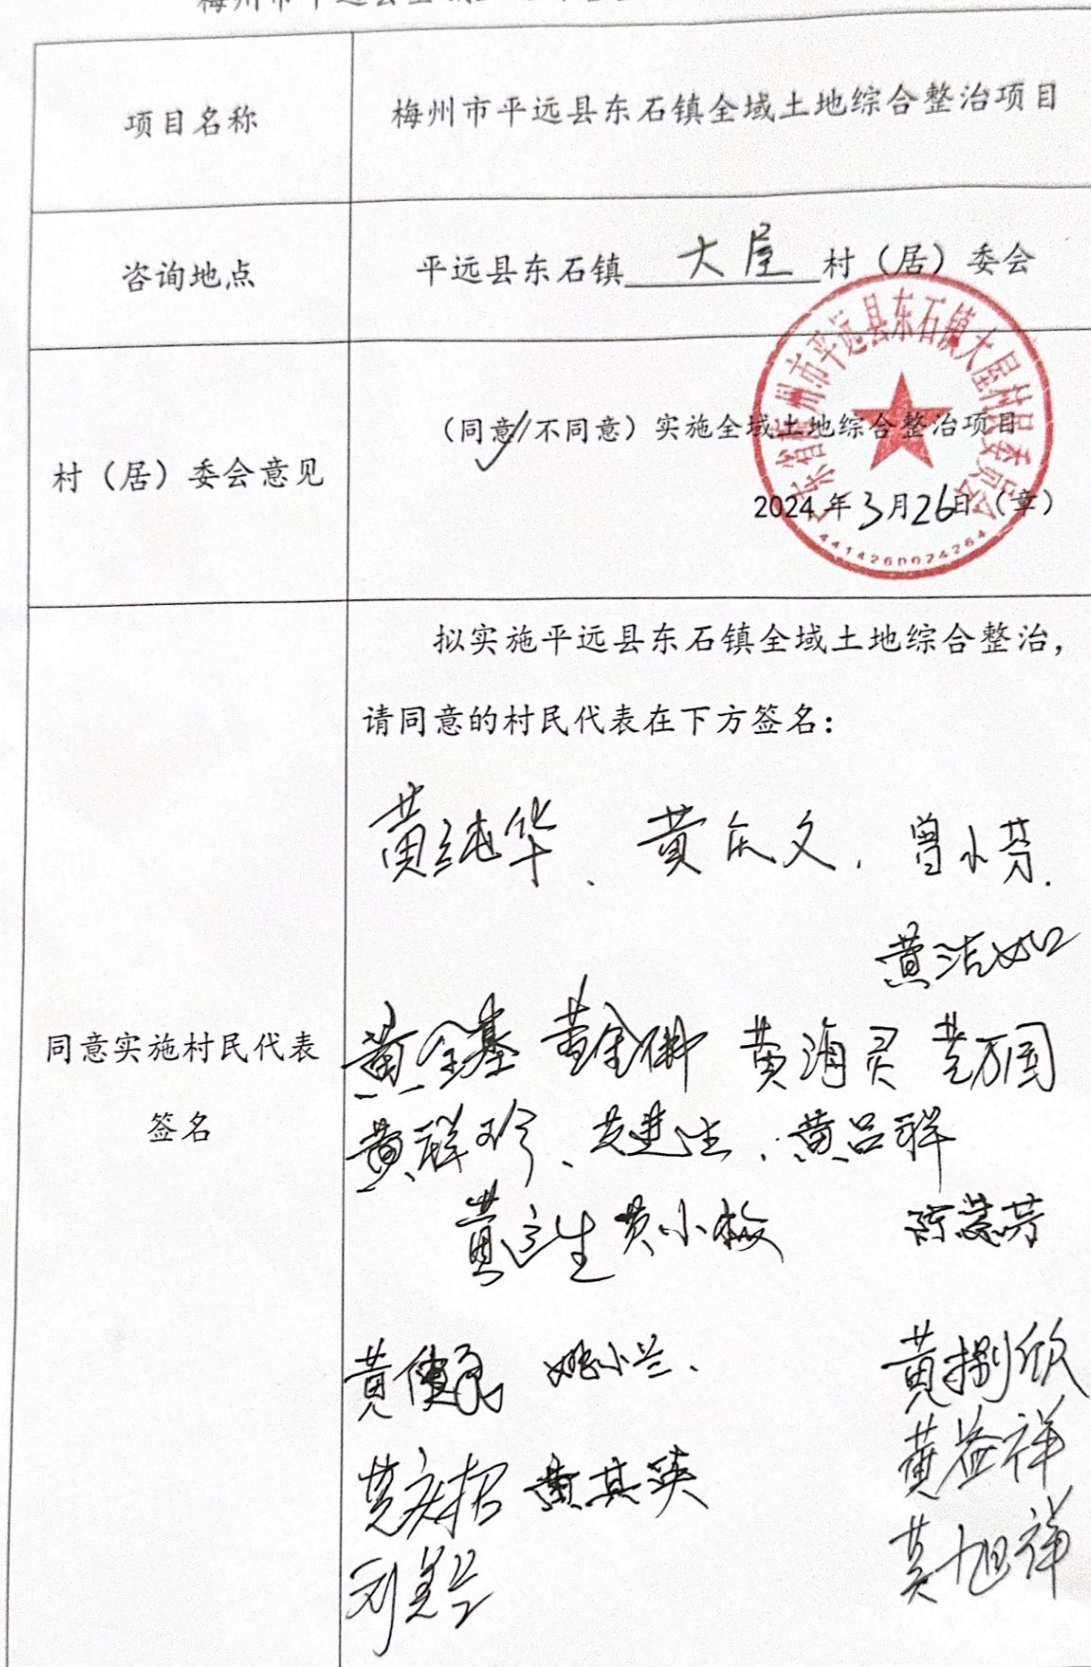 梅州市平远县全域
项目名称
梅州市平远县东石镇全域土地综合整治项目
咨询地点
平远县东石镇 大屋 村（居）委会
村（居）委会意见
（同意/不同意）实施全域土地综合整治项目
2024年3月26日（章）
广东省梅州市平远县东石镇大屋村民委员会
4414260074264
同意实施村民代表
签名
拟实施平远县东石镇全域土地综合整治，
请同意的村民代表在下方签名：
黄纯华、黄庆文，曾小芬.
黄洁如
黄金基 黄海灵 黄万国
黄祥珍、黄进生.黄吕祥
黄小梅
姚小兰.
黄益祥
黄庆招 黄其英
黄旭祥